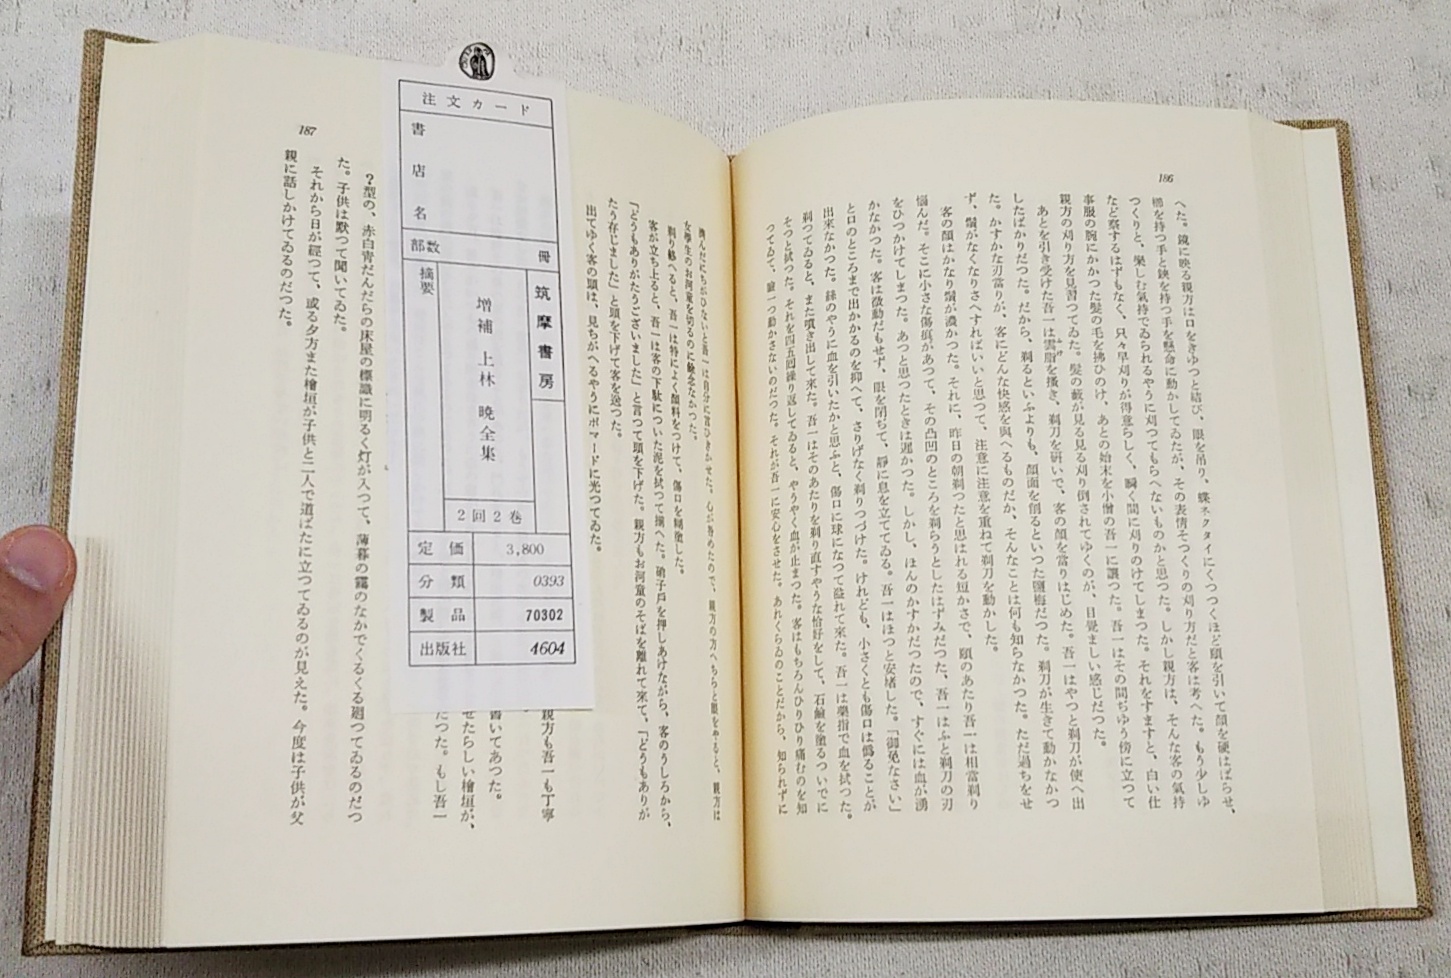 186
へた。鏡に映る親方は口をきゆつと結び、眼を吊り、蝶ネクタイにくつつくほど頤を引いて顔を硬ばらせ、
櫛を持つ手と鋏を持つ手を懸命に動かしてゐたが、その表情そつくりの刈り方だと客は考へた。もう少しゆ
つくりと、樂しむ氣持でゐられるやうに刈つてもらへないものかと思つた。しかし親方は、そんな客の氣持
など察するはずもなく、只々早刈りが得意らしく、瞬く間に刈りのけてしまつた。それをすますと、白い仕
事服の腕にかかつた髮の毛を拂ひのけ、あとの始末を小僧の吾一に讓つた。吾一はその間ぢゆう傍に立つて
親方の刈り方を見習つてゐた。髮の藪が見る見る刈り倒されてゆくのが、目覺ましい感じだつた。
あとを引き受けた吾一は雲脂を搔き、剃刀を研いで、客の顔を當りはじめた。吾一はやつと剃刀が使へ出
したばかりだつた。だから、剃るといふよりも、顔面を削るといつた鹽梅だつた。剃刀が生きて動かなかつ
た。かすかな刃當りが、客にどんな快感を與へるものだか、そんなことは何も知らなかつた。ただ過ちをせ
ず、鬚がなくなりさへすればいいと思つて、注意に注意を重ねて剃刀を動かした。
客の顔はかなり鬚が濃かつた。それに、昨日の朝剃つたと思はれる短かさで、頤のあたり吾一は相當剃り
惱んだ。そこに小さな傷痕があつて、その凸凹のところを剃らうとしたはずみだつた、吾一はふと剃刀の刃
をひつかけてしまつた。あつと思つたときは遲かつた。しかし、ほんのかすかだつたので、すぐには血が湧
かなかつた。客は微動だもせず、眼を閉ぢて、靜に息を立ててゐる。吾一はほつと安緒した。「御免なさい」
と口のところまで出かかるのを抑へて、さりげなく剃りつづけた。けれども、小さくとも傷口は僞ることが
出來なかつた。絲のやうに血を引いたかと思ふと、傷口に球になつて溢れて來た。吾一は藥指で血を拭つた。
剃つてゐると、また噴き出して來た。吾一はそのあたりを剃り直すやうな恰好をして、石鹼を塗るついでに
そつと拭つた。それを四五囘繰り返してゐると、やうやく血が止まつた。客はもちろんひりひり痛むのを知
つてゐて、瞼一つ動かさないのだつた。それが吾一に安心をさせた。あれくらゐのことだから、知られずに
187
濟んだにちがひないと吾一は自分に言ひきかせた。心が咎めたので、親方の方へちらと眼をやると、親方は
女學生のお河童を切るのに餘念なかつた。
剃り終へると、吾一は特によく顔料をつけて、傷口を糊塗した。
客が立ち上ると、吾一は客の下駄についた泥を拭つて揃へた。硝子戸を押しあけながら、客のうしろから、
「どうもありがたうございました」と言つて頭を下げた。親方もお河童のそばを離れて來て、「どうもありが
たう存じました」と頭を下げて客を送つた。
出てゆく客の頭は、見ちがへるやうにポマードに光つてゐた。
親方も吾一も丁寧
書いてあつた。
せたらしい檜垣が、
だつた。もし吾一
?型の、赤白靑だんだらの床屋の標識に明るく灯が入つて、薄暮の靄のなかでくるくる廻つてゐるのだつ
た。子供は默つて聞いてゐた。
それから日が經つて、或る夕方また檜垣が子供と二人で道ばたに立つてゐるのが見えた。今度は子供が父
親に話しかけてゐるのだつた。
注文カード
書店名
部数 冊
筑摩書房
増補 上林 暁全集
摘要
2回2巻
定価 3,800
分類 0393
製品 70302
出版社 4604